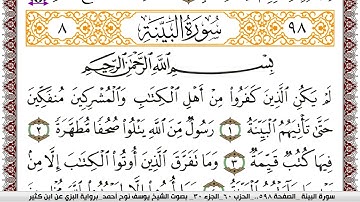 ٩٨ سُورَةُ الْبَيِّنَةِ ٨
بِسْمِ اللَّهِ الرَّحْمَٰنِ الرَّحِيمِ
لَمْ يَكُنِ الَّذِينَ كَفَرُوا مِنْ أَهْلِ الْكِتَابِ وَالْمُشْرِكِينَ مُنْفَكِّينَ
حَتَّى تَأْتِيَهُمُ الْبَيِّنَةُ ١ رَسُولٌ مِنَ اللَّهِ يَتْلُوا صُحُفًا مُطَهَّرَةً ٢
فِيهَا كُتُبٌ قَيِّمَةٌ ٣ وَمَا تَفَرَّقَ الَّذِينَ أُوتُوا الْكِتَابَ إِلَّا مِنْ
سورة البينة _الصفحة ٥٩٨.. الحزب ٦٠_الجزء ٣٠_ بصوت الشيخ يوسف نوح أحمد_برواية البزي عن ابن كثير